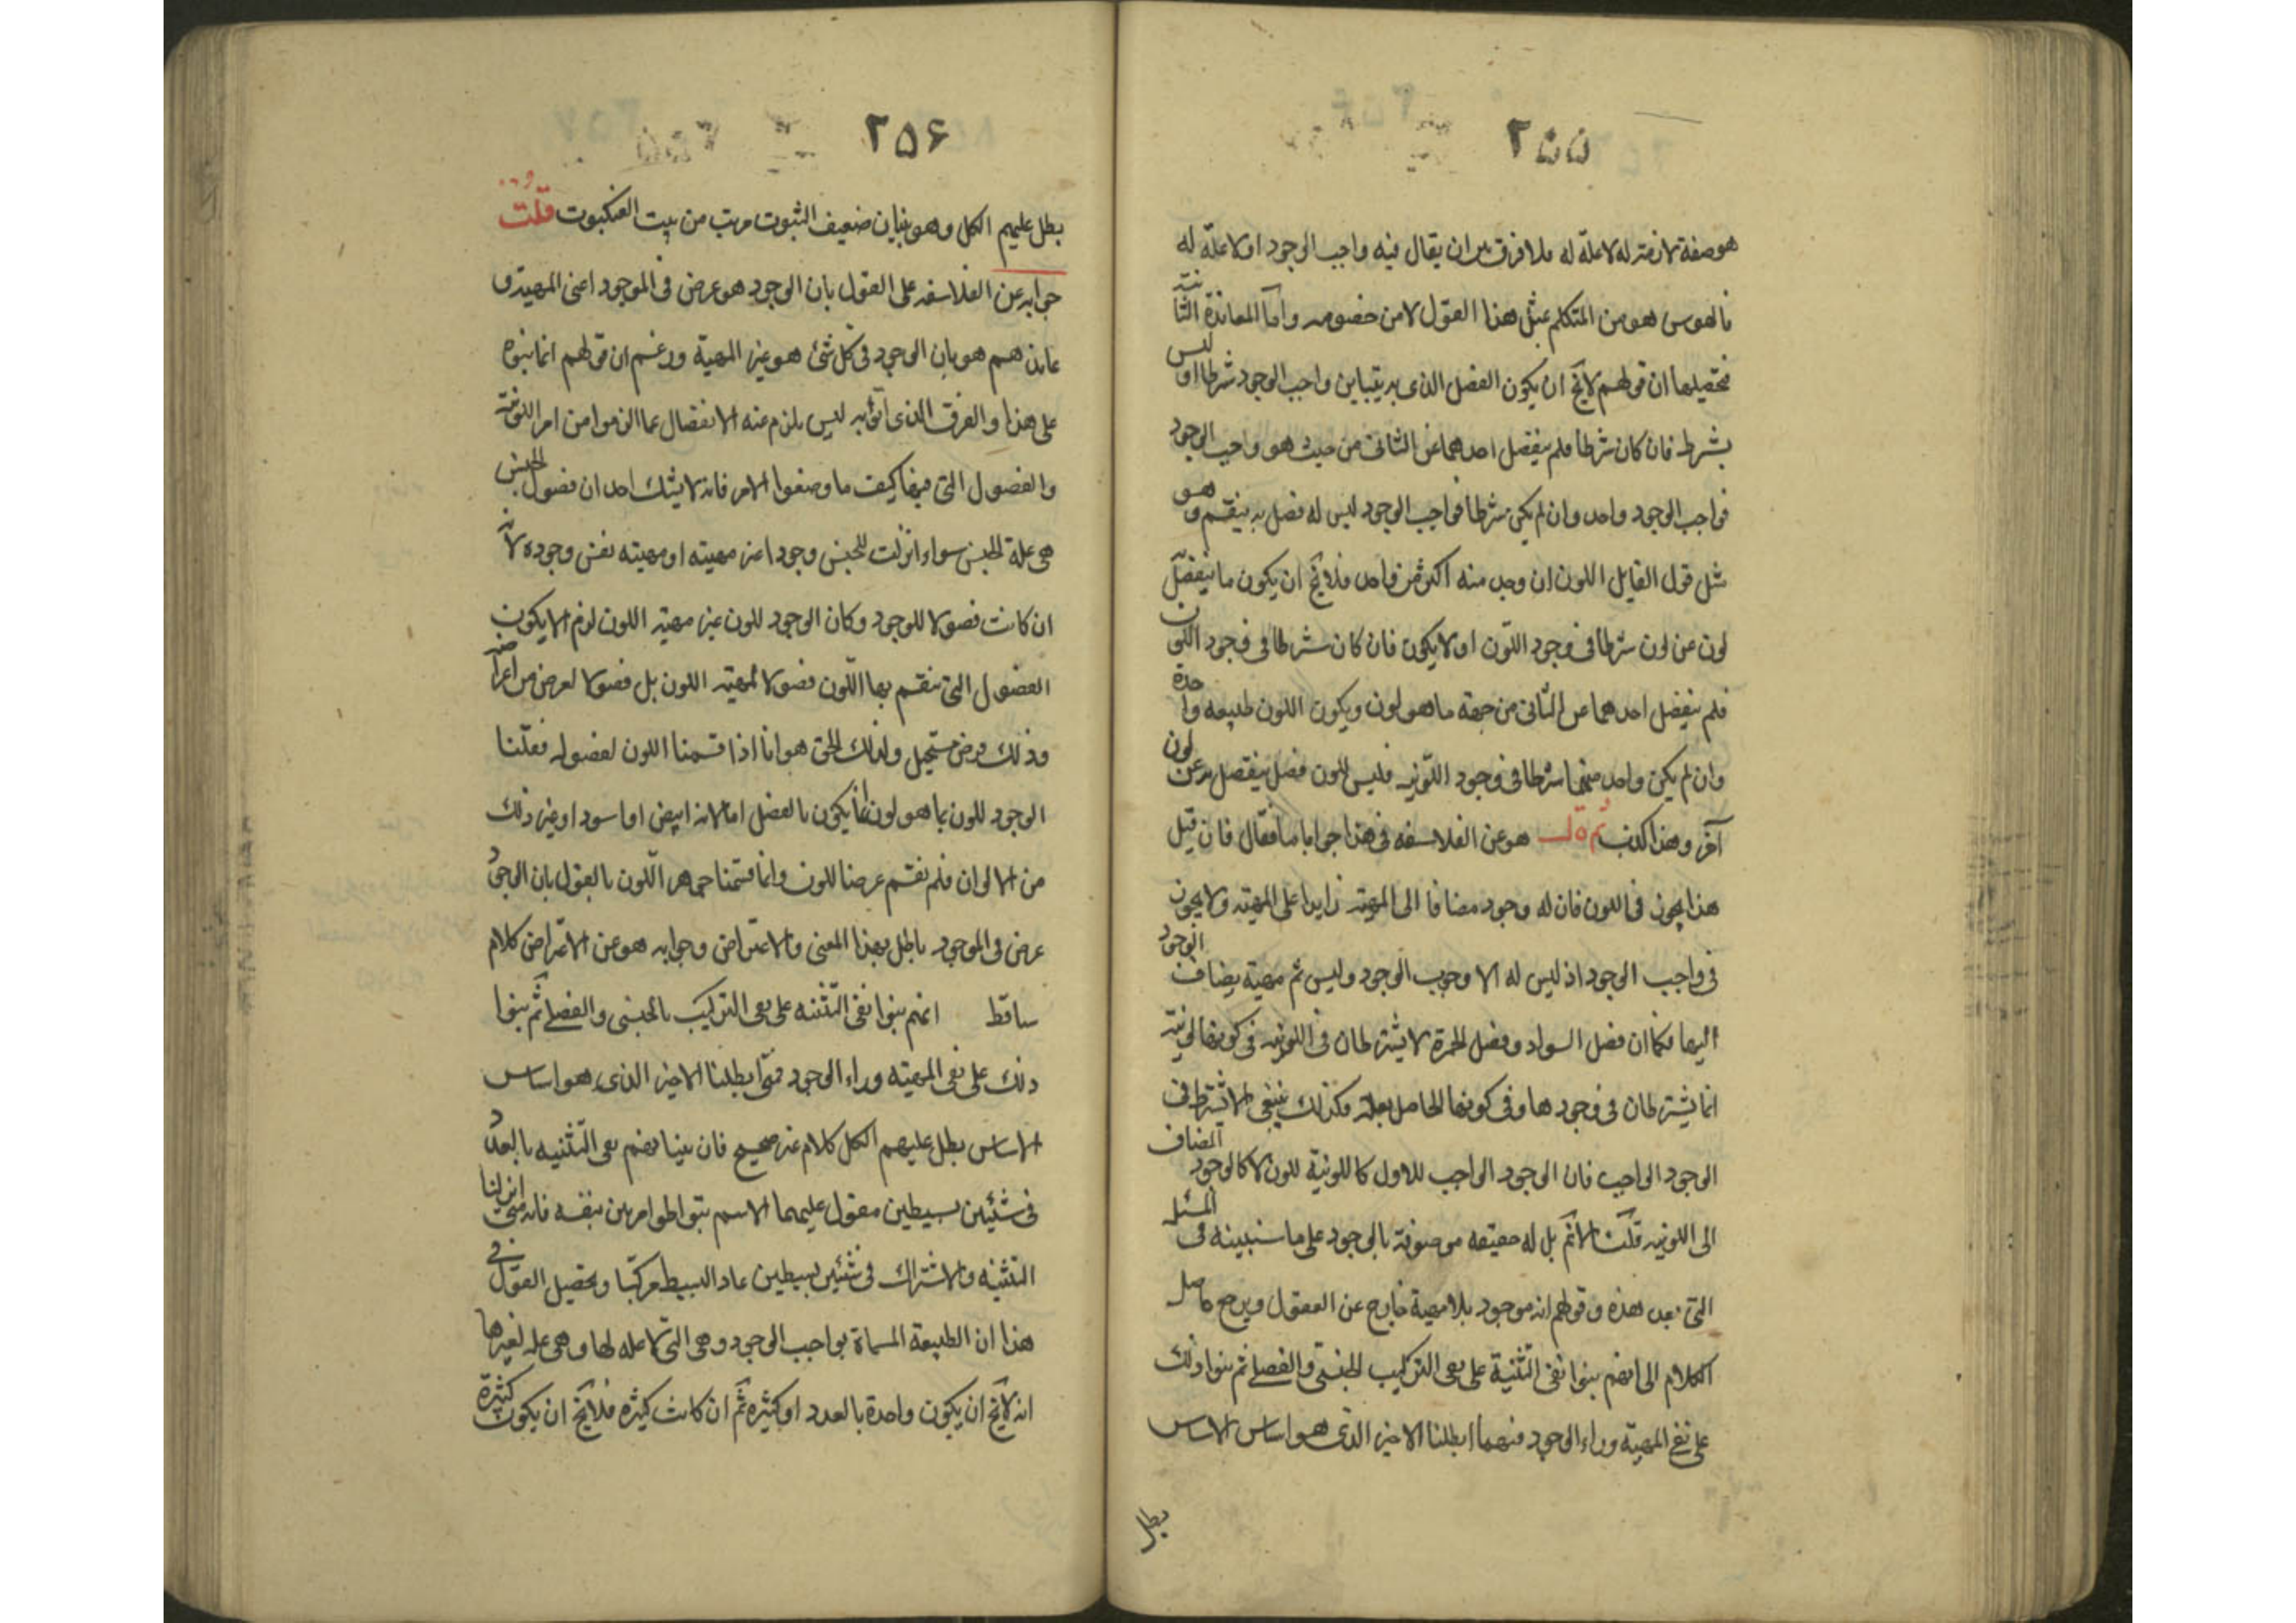 ٢٥٥
هو صفة لازمة له لا علة له فلا فرق بين ان يقال فيه واجب الوجود او لا علة له
فالهوس هو من المتكلم بمثل هذا القول لا من خصومه واما المعاندة الثانية
فتحصيلها ان قولهم لا يخ ان يكون الفصل الذى به يتباين واجب الوجود شرطا او ليس
بشرط فان كان شرطا فلم ينفصل احدهما عن الثانى من حيث هو واجب الوجود
فواجب الوجود واحد وان لم يكن شرطا فواجب الوجود ليس له فصل به ينقسم وهو
مثل قول القايل اللون ان وجد منه اكثر من واحد فلا يخ ان يكون ما ينفصل
لون عن لون شرطا فى وجود اللون او لا يكون فان كان شرطا فى وجود اللون
فلم ينفصل احدهما عن الثانى من جهة ما هو لون ويكون اللون طبيعه واحدة
وان لم يكن واحد منهما شرطا فى وجود اللونيه فليس للون فصل ينفصل به عن لون
آخر وهذا كذب ثم قال هو عن الفلاسفه فى هذا جوابا ما فقال فان قيل
هذا يجوز فى اللون فان له وجود مضافا الى المهية زايدا على المهية ولا يجوز
فى واجب الوجود اذ ليس له الا وجوب الوجود وليس ثم مهية يضاف الوجود
اليها فكما ان فصل السواد وفصل الحمرة لا يشترطان فى اللونيه فى كونها لونية
انما يشترطان فى وجودها وفى كونها الحاصل بعلة فكذلك ينبغى الا يشترط فى
الوجود الواجب فان الوجود الواجب للاول كاللونية للون لا كالوجود المضاف
الى اللونيه قلنا لا نم بل له حقيقه موصوفة بالوجود على ما سنبينه فى المسئلة
التى بعد هذه وقولهم انه موجود بلا مهية خارج عن المعقول ويرجع حاصل
الكلام الى انهم بنوا نفى التثنية على نفى التركيب الجنسى والفصلى ثم بنوا ذلك
على نفى المهية وراء الوجود فمهما ابطلنا الاخير الذى هو اساس الاساس
بطل
٢٥۶
بطل عليهم الكل وهو بنيان ضعيف الثبوت قريب من بيت العنكبوت قلت
جوابه عن الفلاسفه على القول بان الوجود هو عرض فى الموجود اعنى المهية و
عاندهم هو بان الوجود فى كل شئ هو غير المهية وزعم ان قولهم انما بنوه
على هذا والفرق الذى اتوا به ليس يلزم عنه الانفصال عما الزموا من امر اللونية
والفصول التى فيها كيف ما وصفوا الامر فانه لا يشك احد ان فصول الجنس
هى علة الجنس سواء انزلت للجنس وجودا غير مهيته او مهيته نفس وجوده لانه
ان كانت فصولا للوجود وكان الوجود للون غير مهية اللون لزم الا يكون
الفصول التى ينقسم بها اللون فصولا لمهية اللون بل فصولا لعرض من اعراضه
وذلك فرض مستحيل ولذلك الحق هو انا اذا قسمنا اللون لفصوله فقلنا
الوجود للون بما هو لون انما يكون بالفصل اما لانه ابيض او اسود او غير ذلك
من الالوان فلم نقسم عرضا للون وانما قسمنا جوهر اللون بالقول بان الوجود
عرض فى الموجود باطل بهذا المعنى والاعتراض وجوابه هو عن الاعتراض كلام
ساقط انهم بنوا نفى التثنيه على نفى التركيب بالجنسى والفصلى ثم بنوا
ذلك على نفى المهيته وراء الوجود فمتى ابطلنا الاخير الذى هو اساس
الاساس بطل عليهم الكل كلام غير صحيح فان بنيانهم نفى التثنيه بالعدد
فى شئين بسيطين مقول عليهما الاسم بتواطو امر بين بنفسه فانه متى انزلنا
التثنيه والاشتراك فى شئين بسيطين عاد البسيط مركبا وتحصيل القول فى
هذا ان الطبيعة المسماة بواجب الوجود وهى التى لا عله لها وهى عله لغيرها
انه لا يخ ان يكون واحدة بالعدد او كثيره ثم ان كانت كثيره فلا يخ ان يكون كثيرة